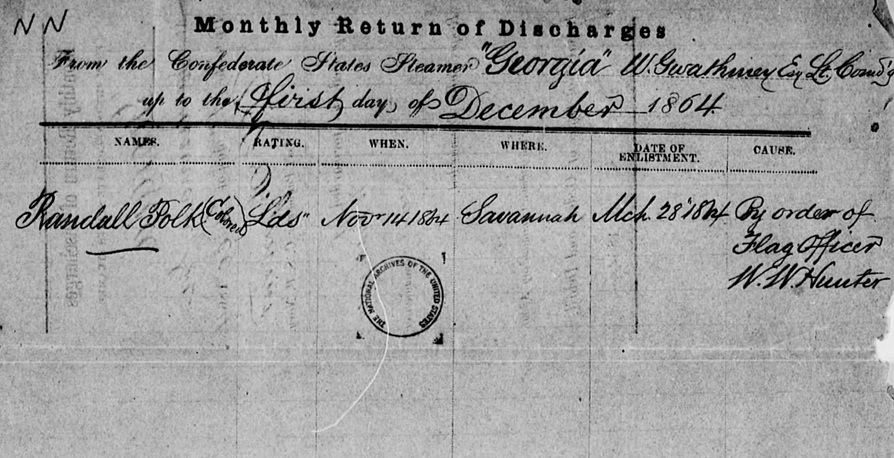 NN
Monthly Return of Discharges
From the Confederate States Steamer "Georgia" W. Gwathmey Esq Lt. Comd'g
up to the first day of December 1864
NAMES. RATING. WHEN. WHERE. DATE OF ENLISTMENT. CAUSE.
Randall Polk (Colored) Lds" Novr 14 1864 Savannah Mch. 28" 1864 By order of
Flag Officer
W. W. Hunter
THE NATIONAL ARCHIVES OF THE UNITED STATES